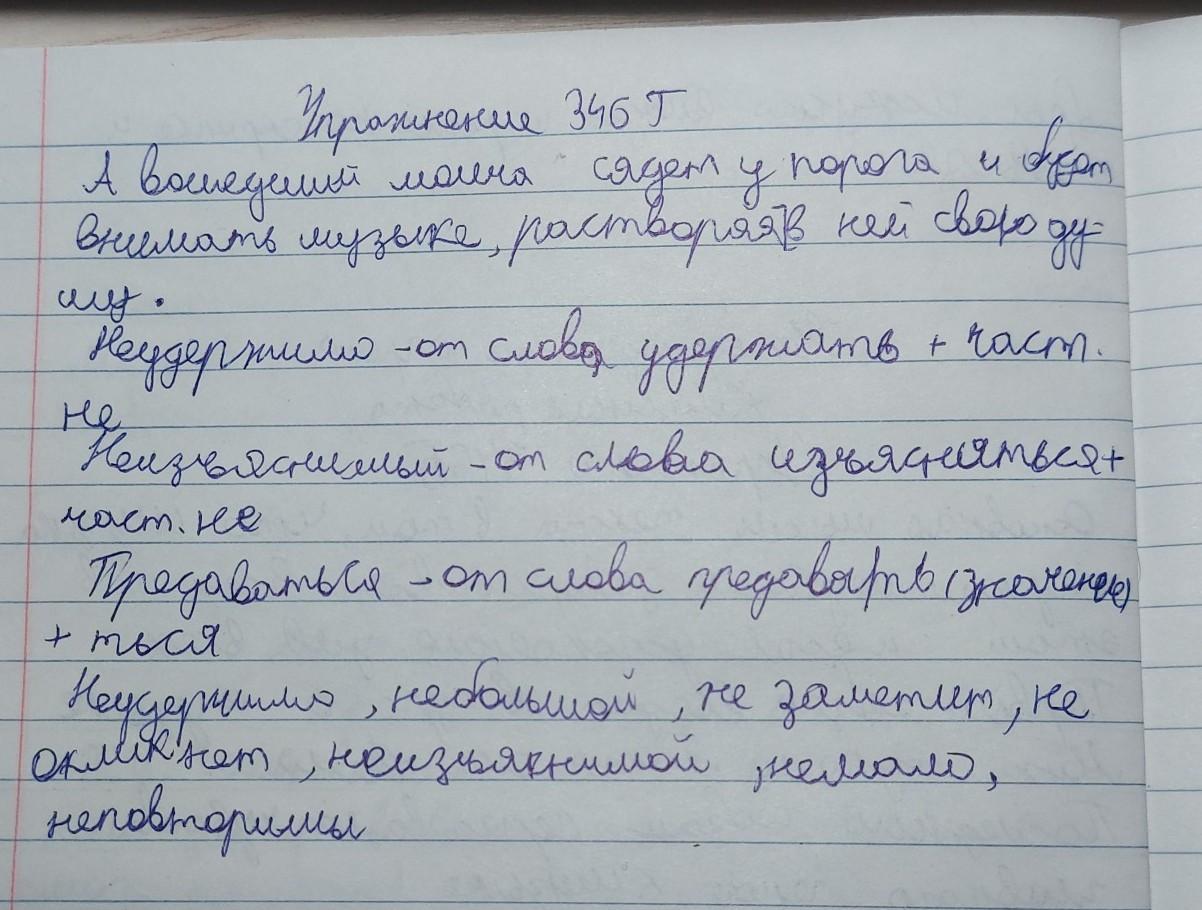 Упражнение 346 Г
А вошедший молча сядет у порога и будет
внимать музыке, растворяя в ней свою ду-
шу.
Неудержимо - от слова удержать + част.
не
Неизъяснимый - от слова изъясняться +
част. не
Предаваться - от слова предавать (значение)
+ ться
Неудержимо, небольшой, не заметит, не
окликнет, неизъяснимой, немало,
неповторимы